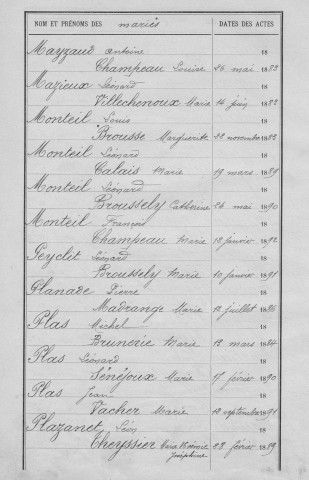 NOM ET PRÉNOMS DES mariés DATES DES ACTES
Mayzaud Antoine 18
Champeau Louise 26 mai 1883
Mazieux Léonard 18
Villechenoux Marie 14 juin 1882
Monteil Louis 18
Brousse Marguerite 22 novembre 1882
Monteil Léonard 18
Calais Marie 19 mars 1889
Monteil Léonard 18
Broussely Catherine 26 mai 1890
Monteil François 18
Champeau Marie 12 janvier 1892
Peyclit Léonard 18
Broussely Marie 10 janvier 1891
Planade Pierre 18
Madrange Marie 12 juillet 1886
Plas Michel 18
Brunerie Marie 12 mars 1884
Plas Léonard 18
Sénéjoux Marie 17 février 1890
Plas Jean 18
Vacher Marie 19 septembre 1891
Plazanet Léon 18
Cheyssier Marie Joséphine 28 février 1889